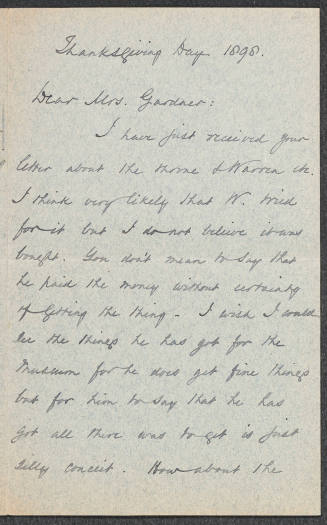 Thanksgiving Day 1898.
Dear Mrs. Gardner:
I have just received your
letter about the throne & Warren etc.
I think very likely that W. tried
for it but I do not believe it was
bought. You don't mean to say that
he paid the money without certainty
of getting the thing - I wish I could
see the things he has got for the
Museum for he does get fine things
but for him to say that he has
got all there was to get is just
silly conceit. How about the